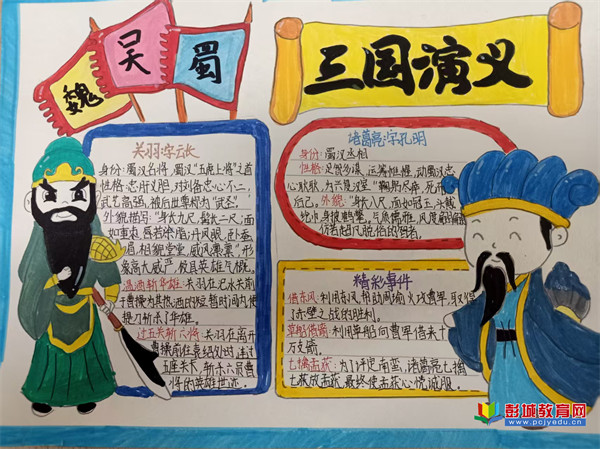 魏
吴
蜀
三国演义
关羽字云长
身份:蜀汉名将,蜀汉"五虎上将"之首
性格:忠肝义胆,对刘备忠心不二,
武艺高强,被后世尊称为"武圣"。
外貌描写:"身长九尺,髯长二尺,面
如重枣,唇若涂脂,丹凤眼,卧蚕
眉,相貌堂堂,威风凛凛"形
象高大威严,极具英雄气概。
温酒斩华雄:关羽在汜水关前
于曹操为其热酒的短暂时间内便
提刀斩了华雄。
过五关斩六将:关羽在离开
曹操前往袁绍处时,连过
五座关卡,斩杀六员曹
将的英雄世迹。
诸葛亮字孔明
身份:蜀汉丞相
性格:足智多谋,运筹帷幄,动蜀汉忠
心耿耿,为兴复汉室"鞠躬尽瘁,死而
后已。外貌:"身长八尺,面如冠玉,头戴
纶巾,身披鹤氅,气质儒雅,风度翩翩
仿若超凡脱俗的智者。
精彩事件
借东风:利用东风,帮助周瑜火攻曹军,取得
了赤壁之战的胜利。
草船借箭:利用草船向曹军借来十
万支箭。
七擒孟获:为了评定南蛮,诸葛亮七擒
七放孟获,最终使孟获心悦诚服。
彭城教育网
www.pcjyedu.cn